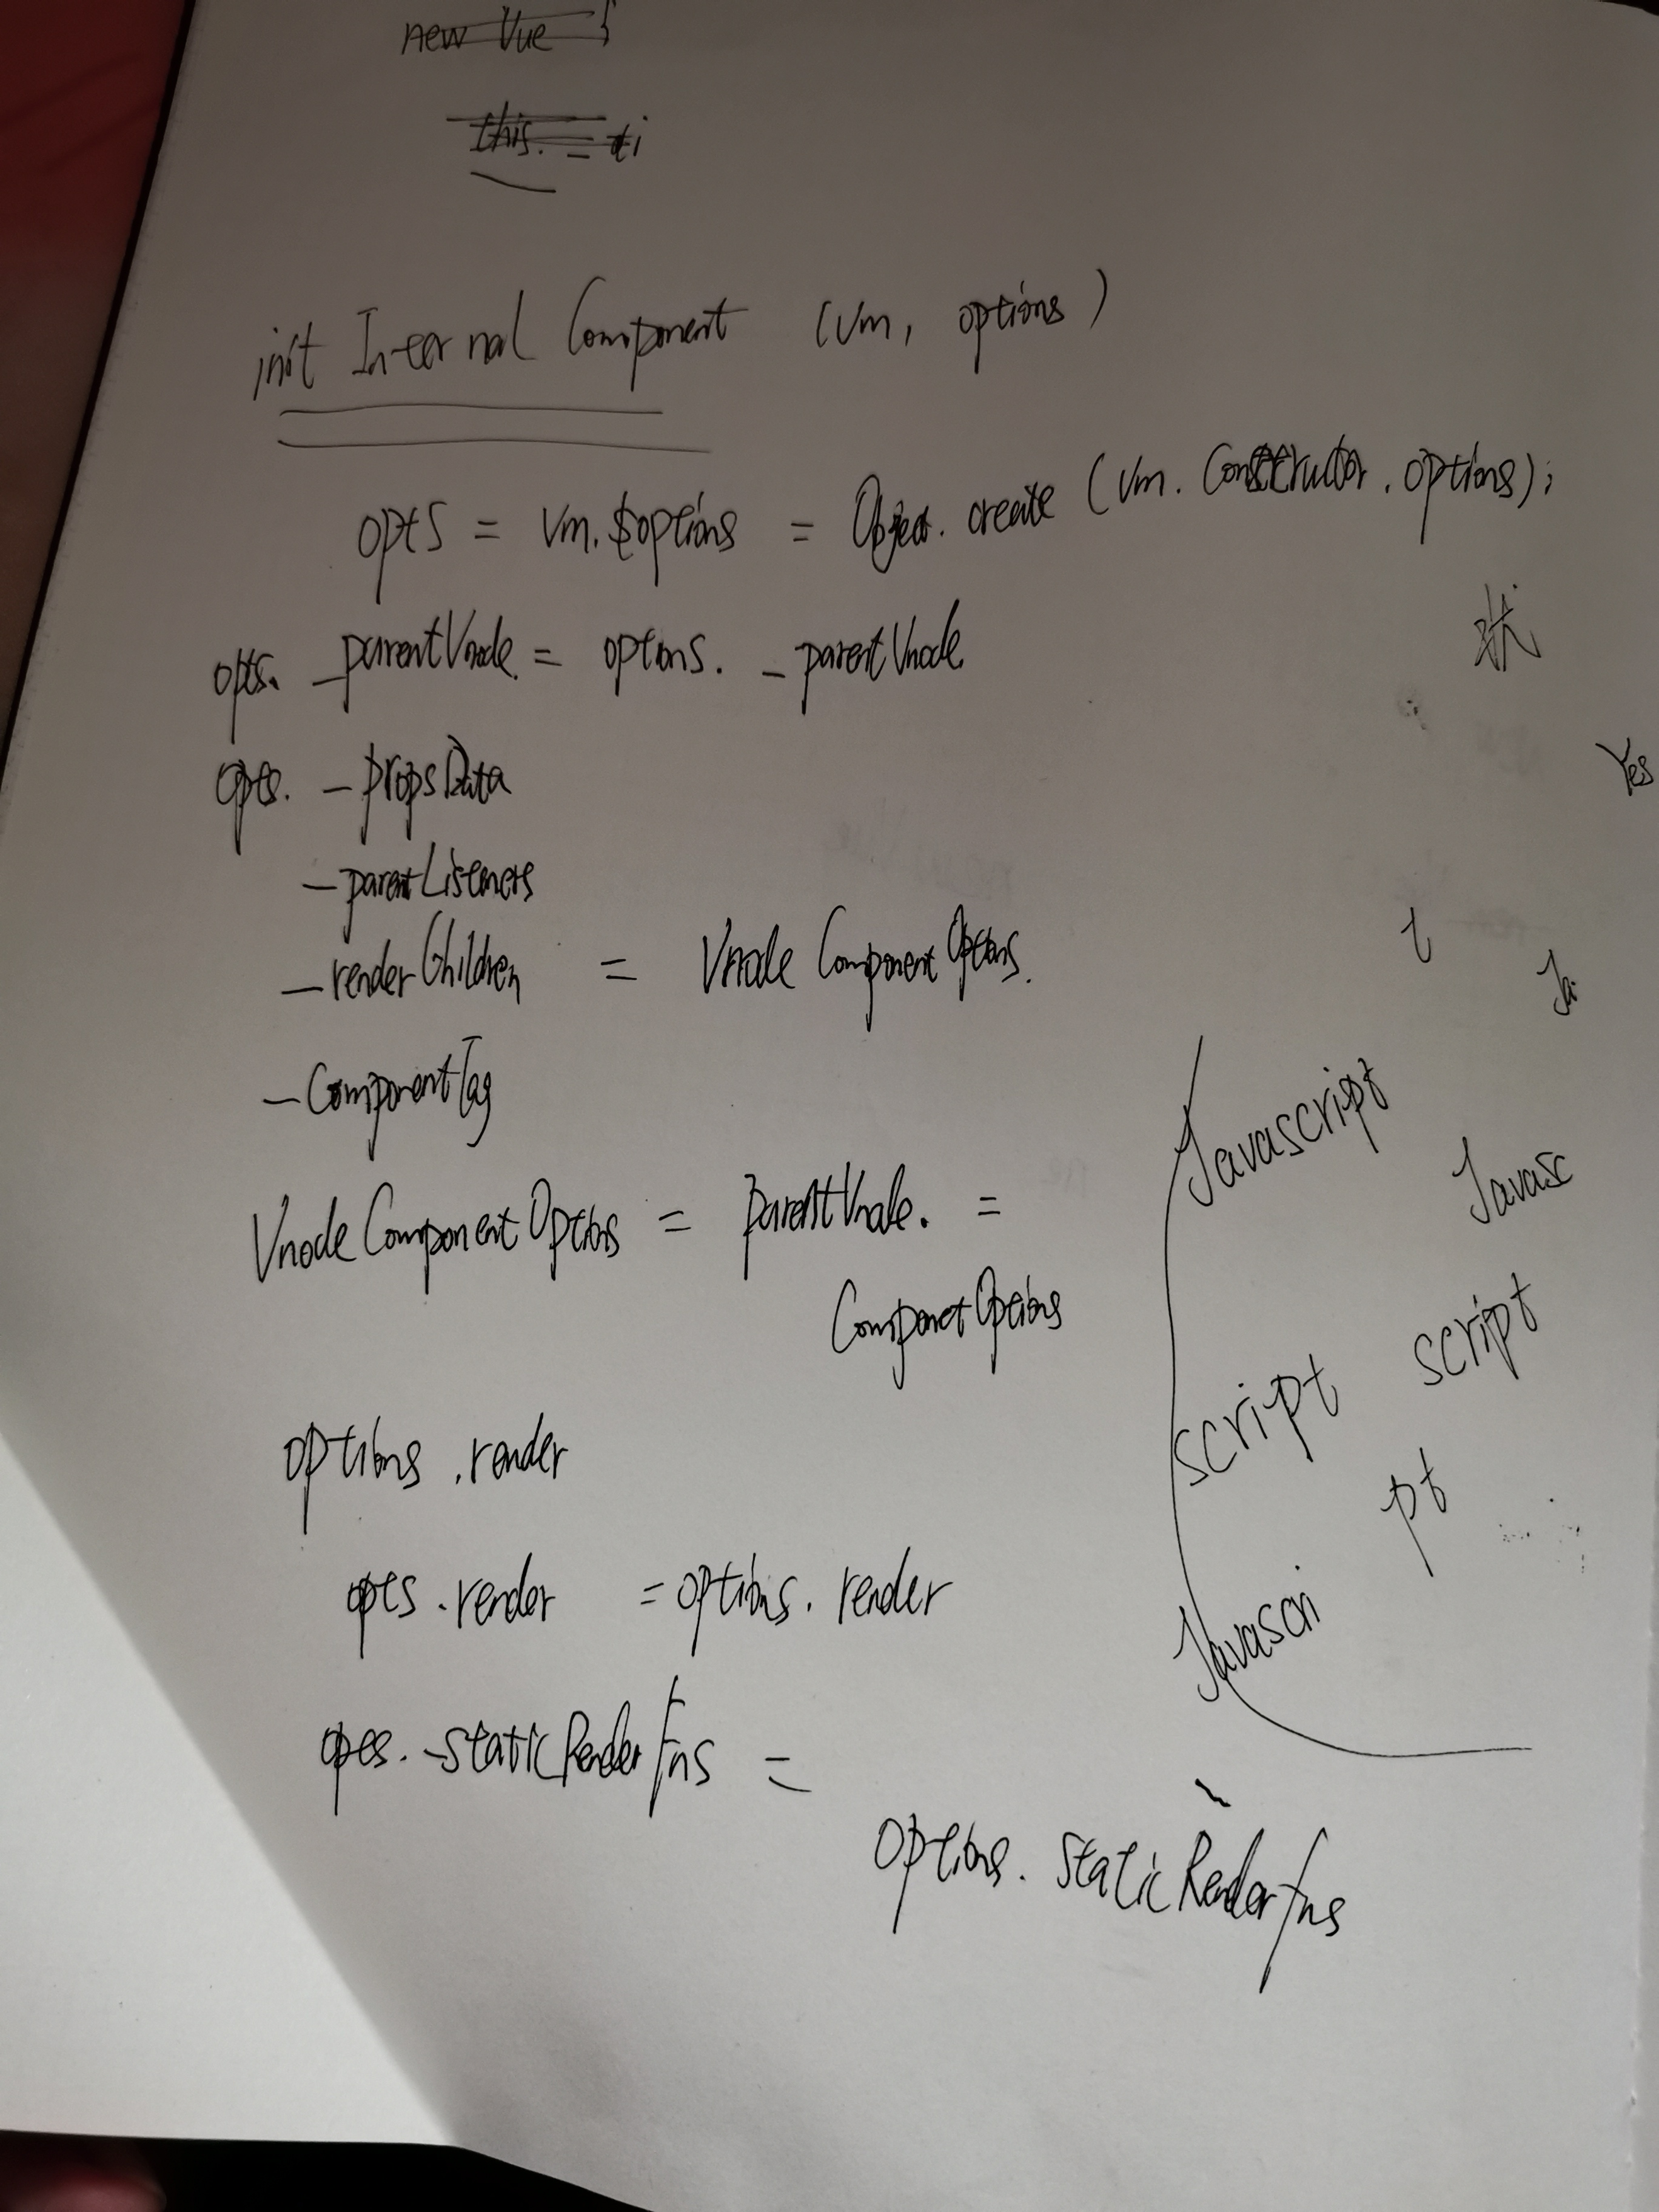 new Vue {
this. = ti
init Internal Component (vm, options)
opts = vm.$options = Object.create (vm. Constructor. options);
opts. _parentVnode = options. _parentVnode
opts. _propsData
_parentListeners
_renderChildren = Vnode Component Options.
_ComponentTag
VnodeComponentOptions = parentVnode. =
ComponetOptions
options .render
opts .render = options. render
opts. _staticRenderFns =
options. staticRenderFns
状
Yes
t
Ja
Javascript
Javasc
script
script
pt
Javascri